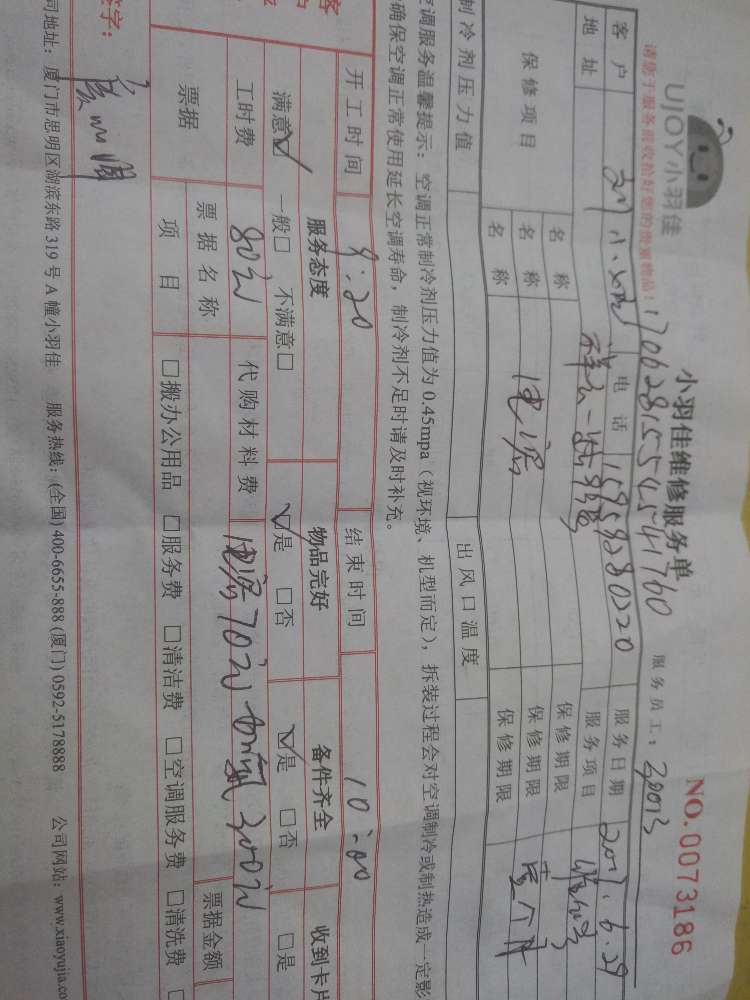 UJOY小羽佳
小羽佳维修服务单
NO.0073186
请您于服务前收拾好您的贵重物品！
1706281554541760
服务员工：
客户
电话 15959280220
服务日期 2017.6.29
地址
服务项目
保修项目
名称
保修期限
名称 电容
保修期限
名称
保修期限
制冷剂压力值
出风口温度
空调服务温馨提示：空调正常制冷剂压力值为0.45mpa（视环境、机型而定），拆装过程会对空调制冷或制热造成一定影
确保空调正常使用延长空调寿命，制冷剂不足时请及时补充。
开工时间 9:20
结束时间 10:00
服务态度
物品完好
备件齐全
收到卡片
满意☑ 一般□ 不满意□
☑是 □否
☑是 □否
□是
工时费 80元
代购材料费 电容70元 加氟300元
票据
票据名称
票据金额
项目
□搬办公用品 □服务费 □清洁费 □空调服务费 □清洗费 □
签字：
司地址：厦门市思明区湖滨东路319号A幢小羽佳 服务热线：(全国) 400-6655-888 (厦门) 0592-5178888 公司网站：www.xiaoyujia.co